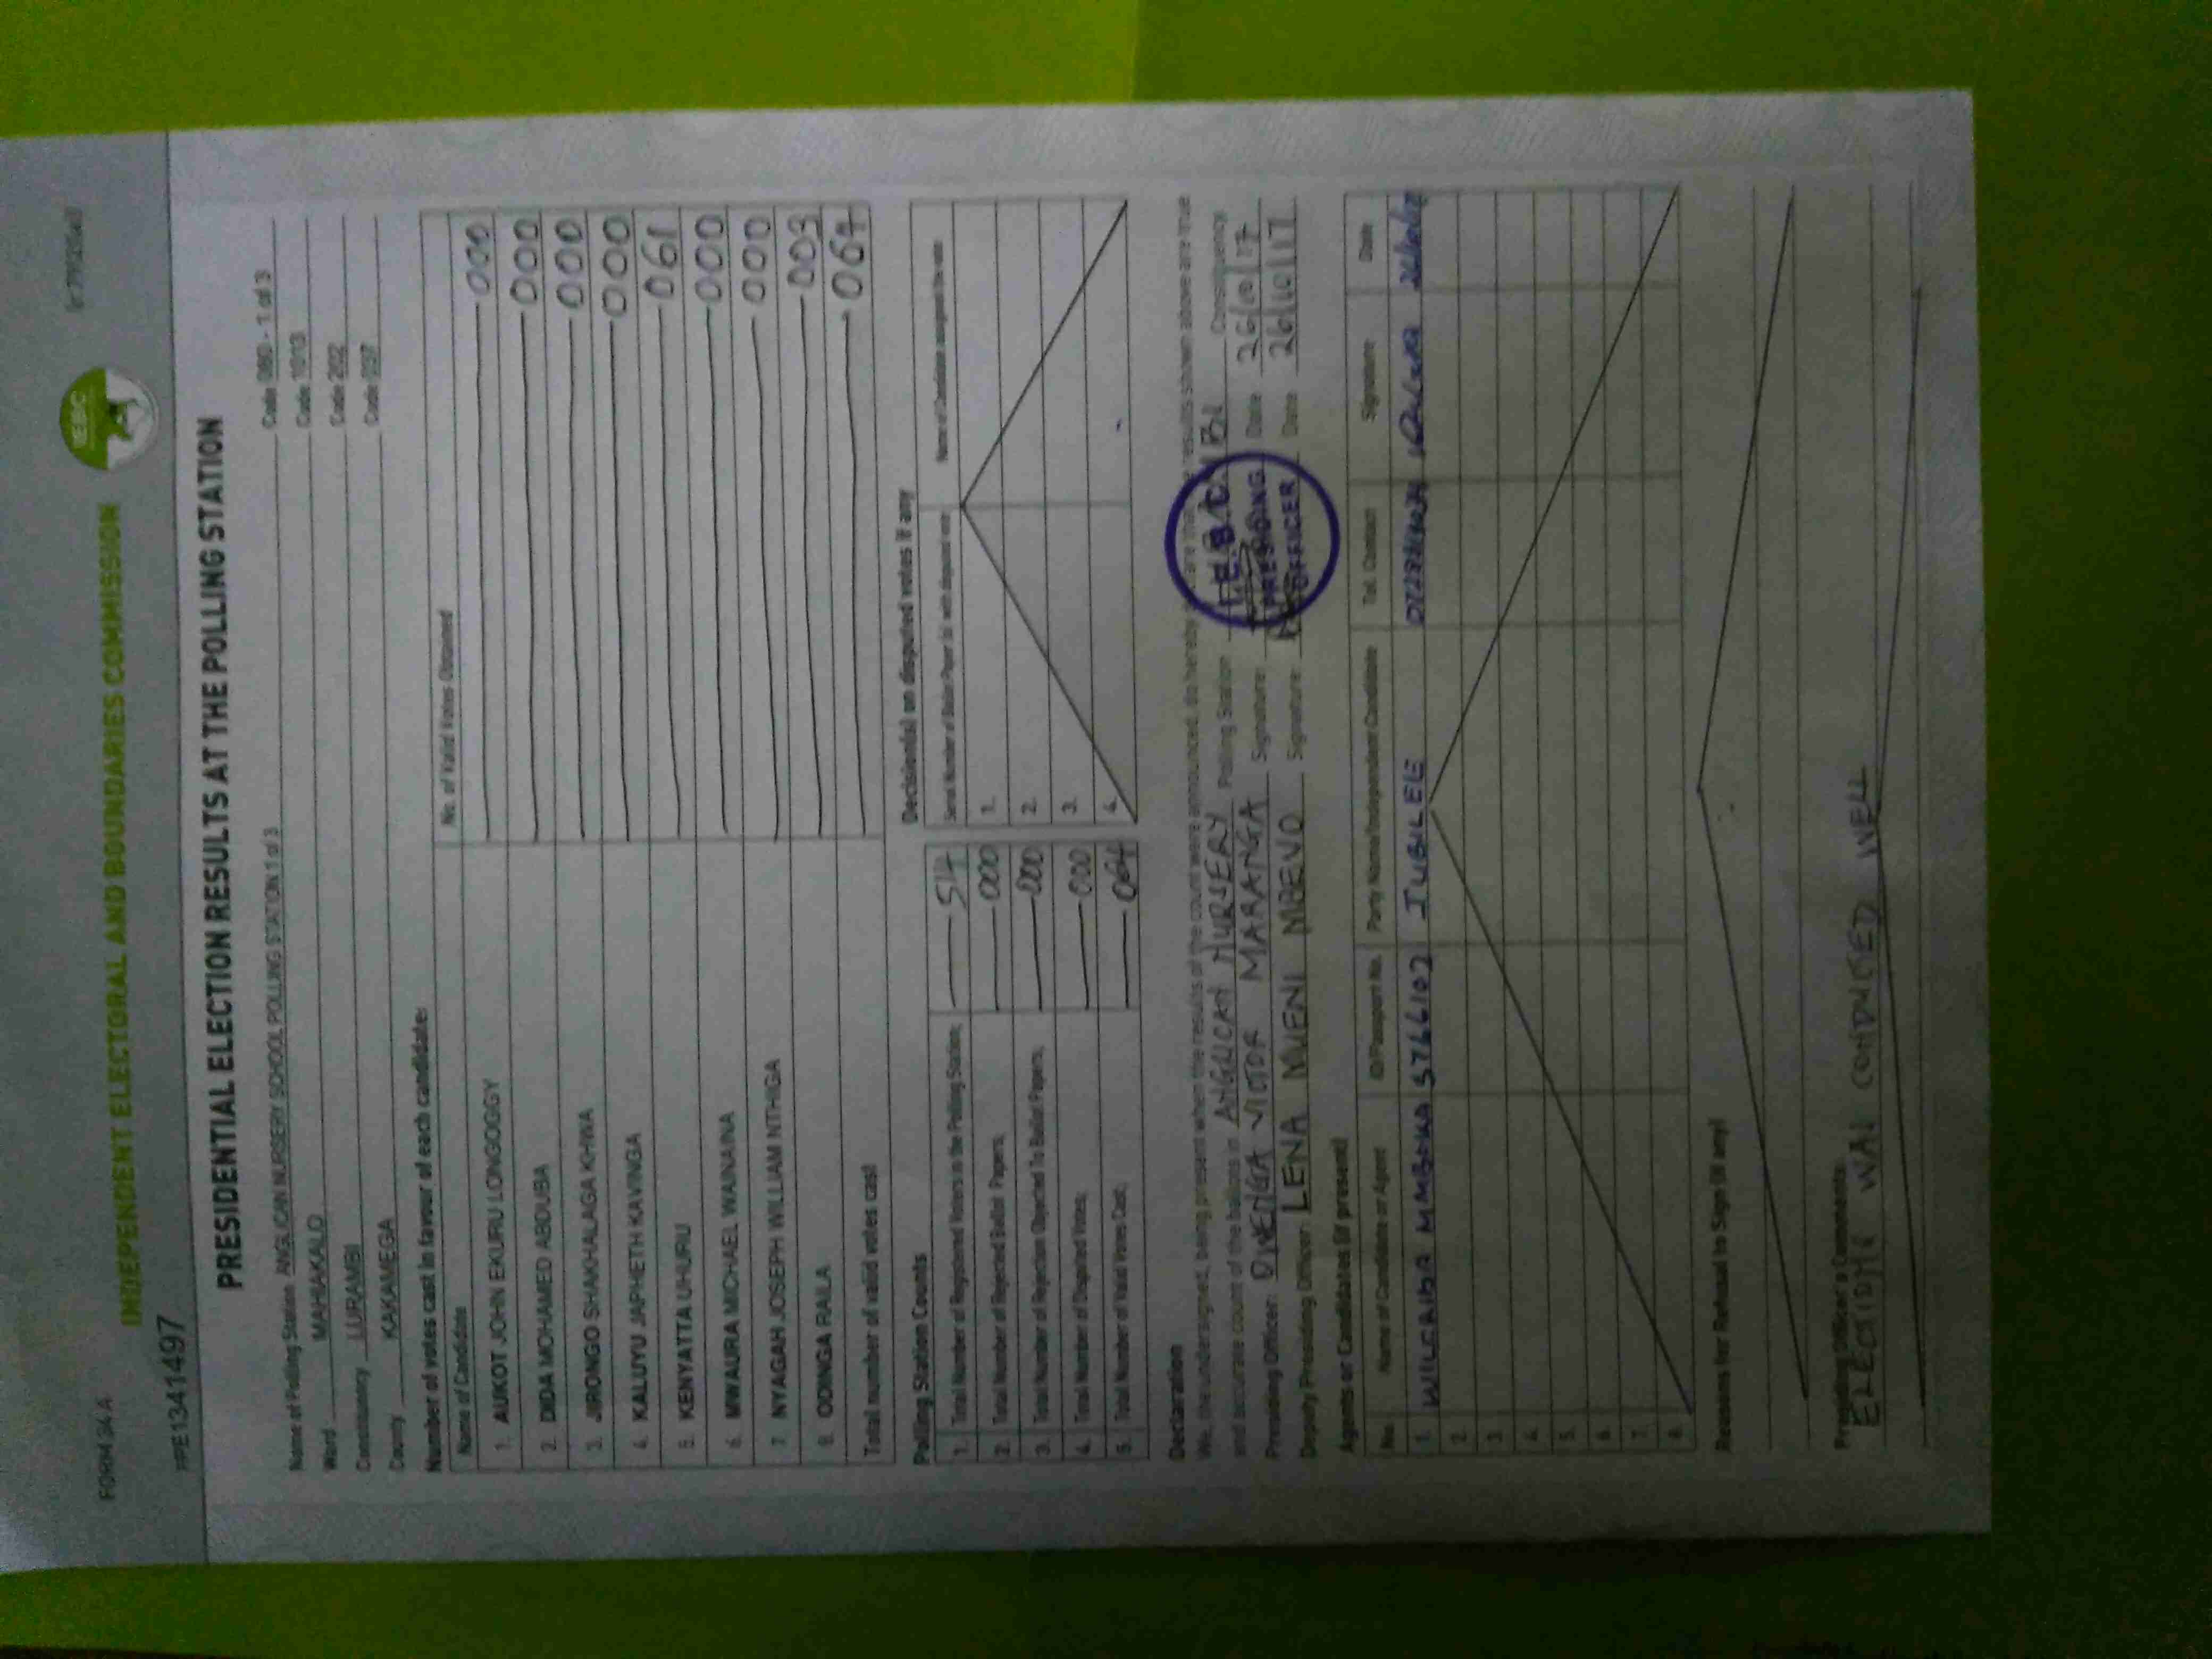 FORM 34A
INDEPENDENT ELECTORAL AND BOUNDARIES COMMISSION
IEBC
PRE1341497
PRESIDENTIAL ELECTION RESULTS AT THE POLLING STATION
Name of Polling Station ANGLICAN NURSERY SCHOOL POLLING STATION 1 of 3 Code 080 - 1 of 3
Ward MAHIAKALO Code 1013
Constituency LURAMBI Code 202
County KAKAMEGA Code 037
Number of votes cast in favour of each candidate:
Name of Candidate No. of Valid Votes Obtained
1. AUKOT JOHN EKURU LONGOGGY 000
2. DIDA MOHAMED ABDUBA 000
3. JIRONGO SHAKHALAGA KHWA 000
4. KALUYU JAPHETH KAVINGA 000
5. KENYATTA UHURU 061
6. MWAURA MICHAEL WAINAINA 000
7. NYAGAH JOSEPH WILLIAM NTHIGA 000
8. ODINGA RAILA 003
Total number of valid votes cast 064
Polling Station Counts
1. Total Number of Registered Voters in the Polling Station; 514
2. Total Number of Rejected Ballot Papers; 000
3. Total Number of Rejection Objected To Ballot Papers; 000
4. Total Number of Disputed Votes; 000
5. Total Number of Valid Votes Cast; 064
Decision(s) on disputed votes if any
Serial Number of Ballot Paper (s) with disputed vote Name of Candidate assigned the vote
1.
2.
3.
4.
Declaration
We, the undersigned, being present when the results of the count were announced, do hereby results shown above are true
and accurate count of the ballots in ANGLICAN NURSERY Polling Station Constituency
Presiding Officer: VICTOR MARANGA Signature: Date 26/10/17
Deputy Presiding Officer: LENA MUENI MBEVO Signature: Date 26/10/17
I.E.B.C
PRESIDING
OFFICER
Agents or Candidates (if present)
No. Name of Candidate or Agent ID/Passport No. Party Name/Independent Candidate Tel. Contact Signature Date
1. 5766102 JUBILEE
2.
3.
4.
5.
6.
7.
8.
Reasons for Refusal to Sign (if any)
Presiding Officer's Comments:
ELECTIONS WAS CONDUCTED WELL